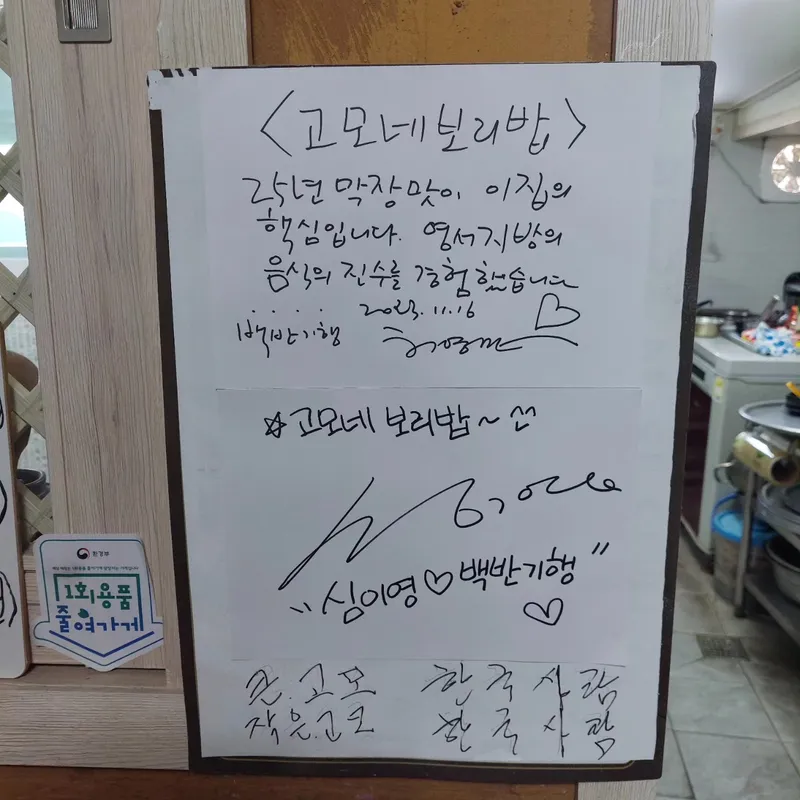 <고모네보리밥>
25년 막장맛이 이집의
핵심입니다. 영서지방의
음식의 진수를 경험했습니다
2023. 11. 16
백반기행 허영만
☆고모네 보리밥~
"심이영♡백반기행"
큰.고모 한국사람
작은.고모 한국사람
환경부
1회용품
줄여가게